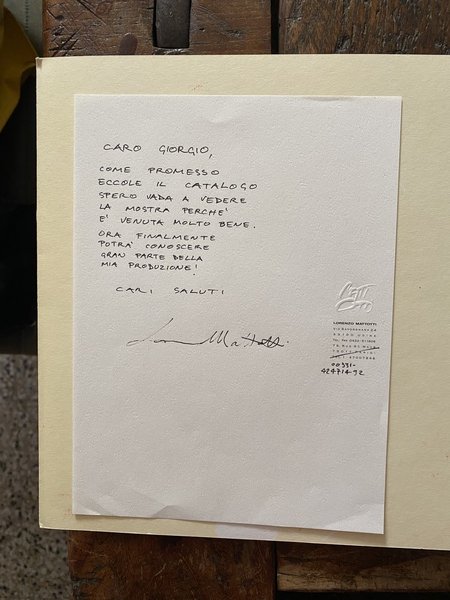 CARO GIORGIO,
COME PROMESSO
ECCOLE IL CATALOGO
SPERO VADA A VEDERE
LA MOSTRA PERCHE'
E' VENUTA MOLTO BENE.
ORA FINALMENTE
POTRA' CONOSCERE
GRAN PARTE DELLA
MIA PRODUZIONE!
CARI SALUTI
Mattotti
LORENZO MATTOTTI
33100 UDINE
00331-
42471492